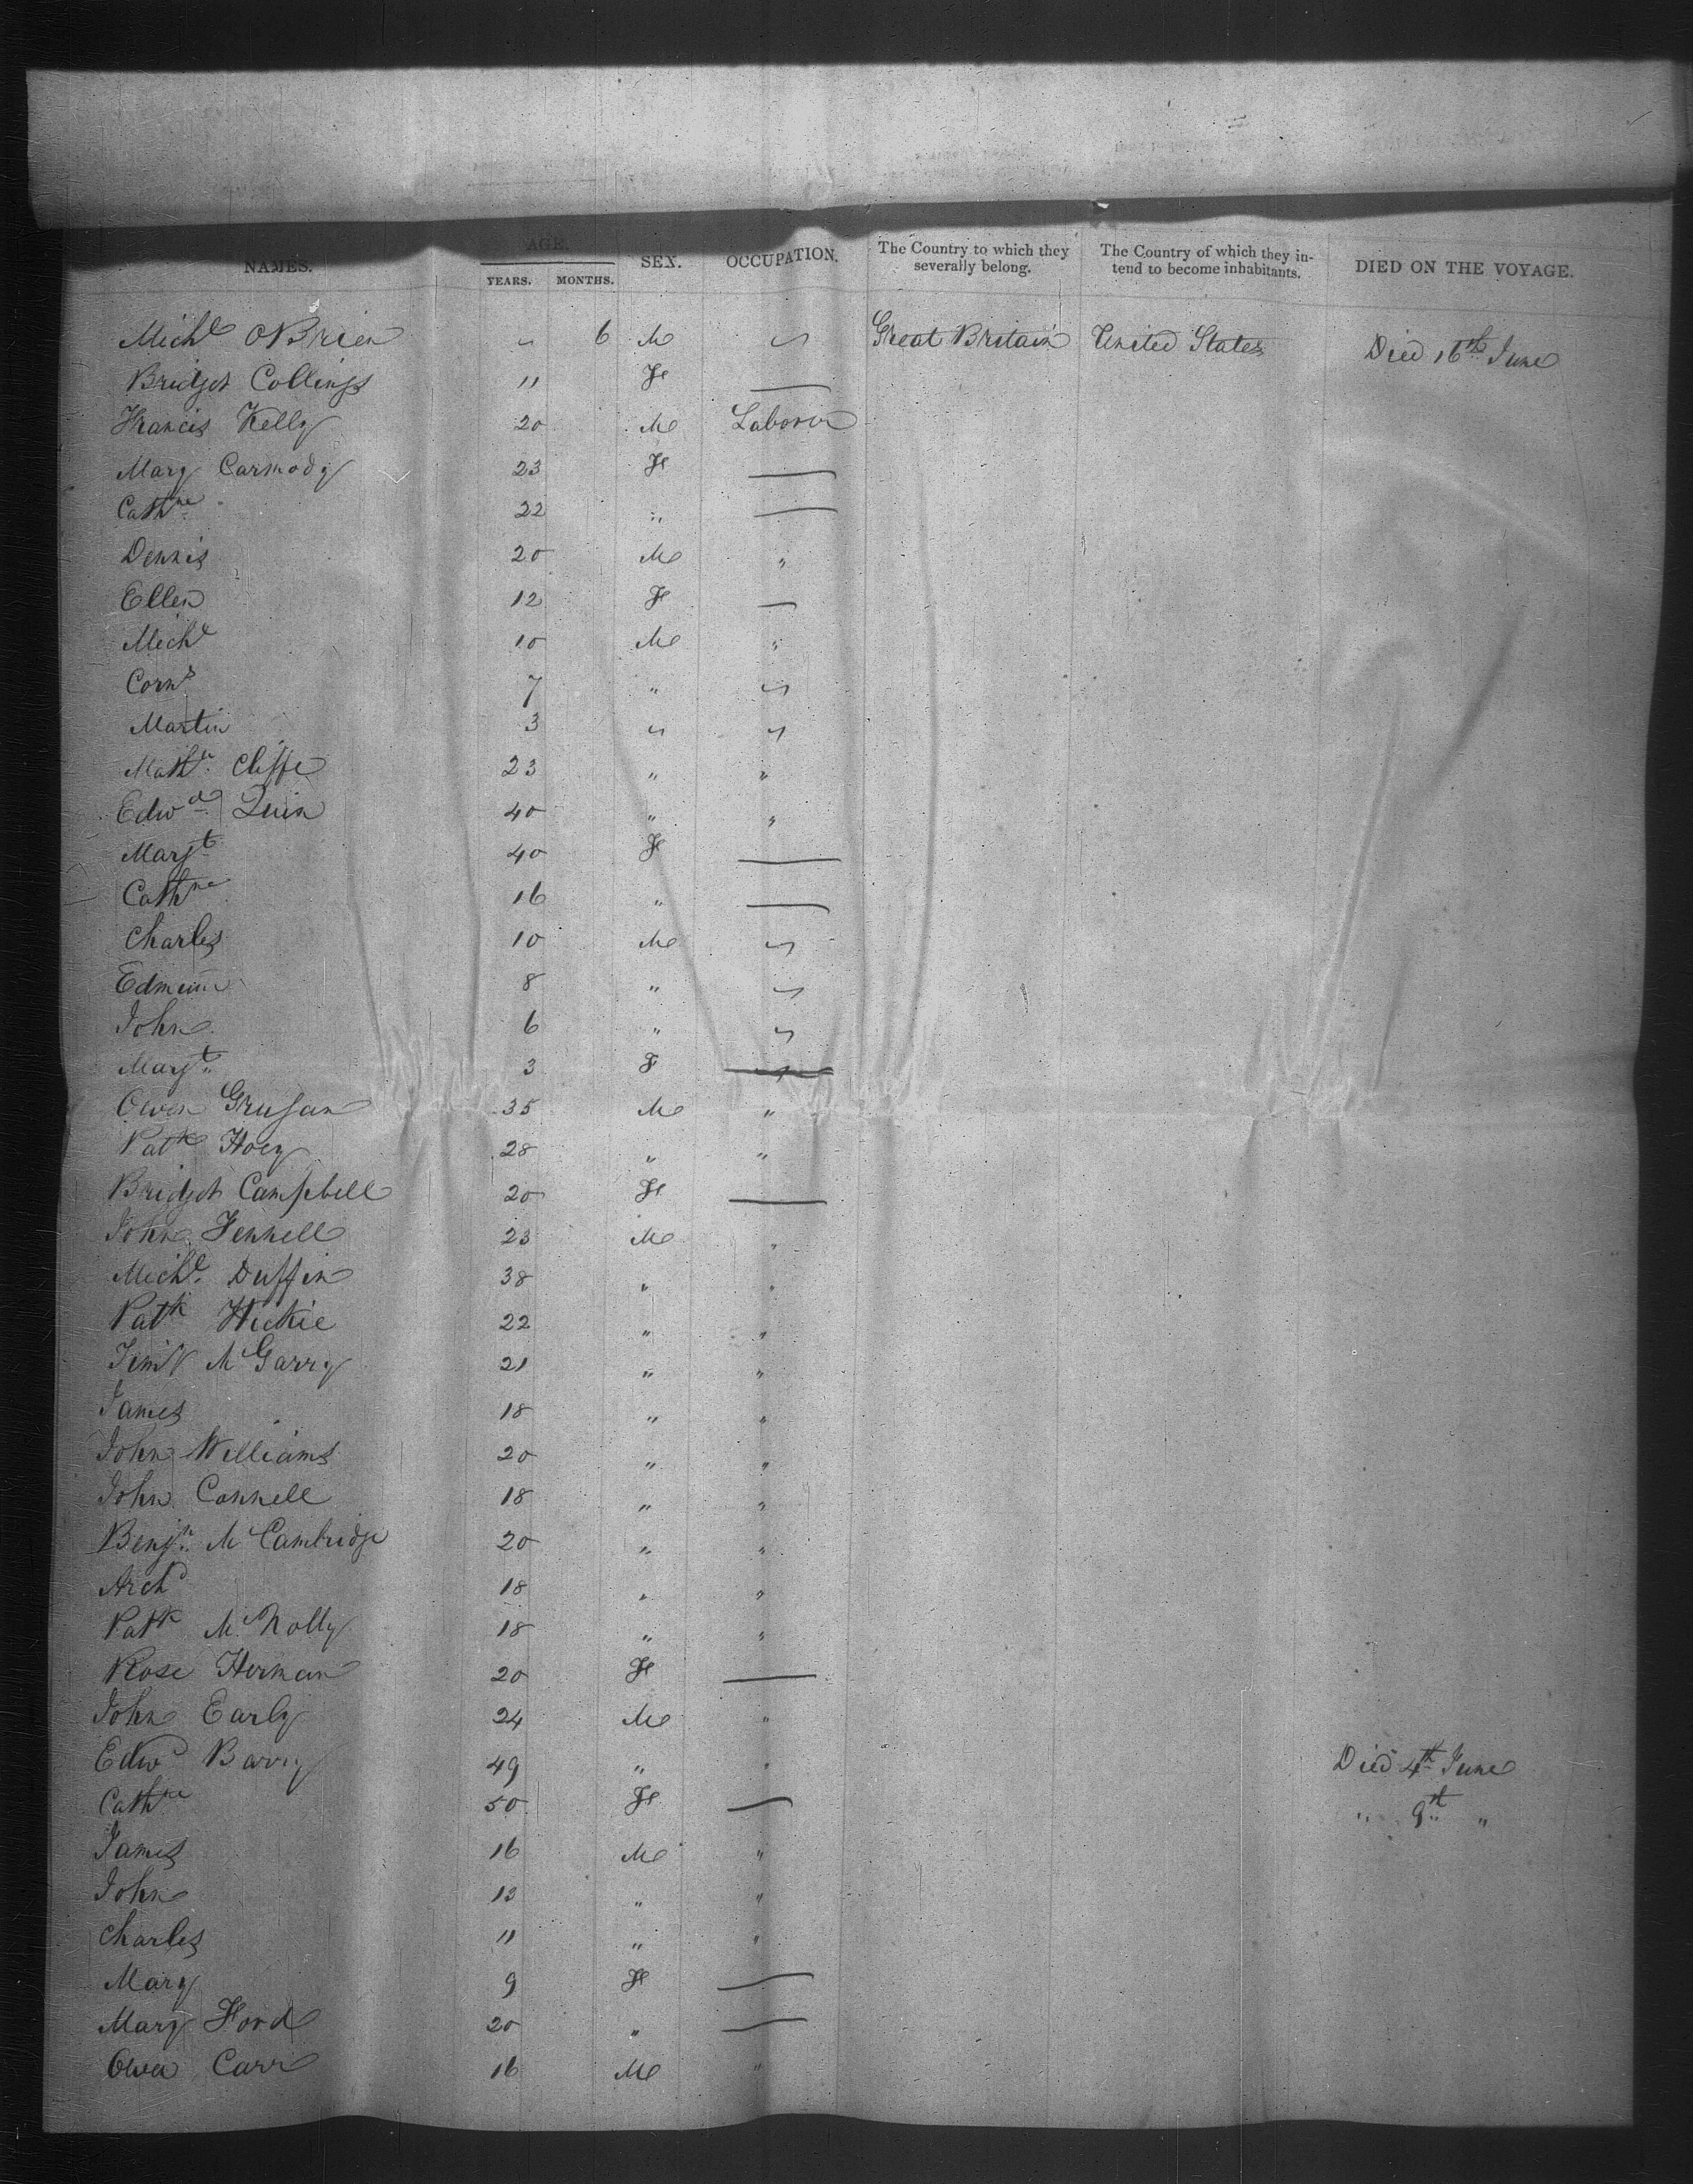 NAMES. AGE. SEX. OCCUPATION. The Country to which they severally belong. The Country of which they intend to become inhabitants. DIED ON THE VOYAGE.
YEARS. MONTHS.
Michl OBrien " 6 M " Great Britain United States Died 16th June
Bridget Collings 11 F —
Francis Kelly 20 M Laborer
Mary Carmody 23 F —
Cathne 22 " —
Dennis 20 M "
Ellen 12 F —
Michl 10 M "
Corns 7 " "
Martin 3 " "
Mathw Cliffe 23 " "
Edwd Quin 40 " "
Margt 40 F —
Cathne 16 " —
Charles 10 M "
Edmund 8 " "
John 6 " "
Margt 3 F —
Owen 35 M "
Patk Hoey 28 " "
Bridget Campbell 20 F —
John Fennell 23 M "
Michl Duffin 38 " "
Patk Hickie 22 " "
Timy McGarry 21 " "
James 18 " "
John Williams 20 " "
John Connell 18 " "
Benjn McCambridge 20 " "
Archd 18 " "
Patk McNolly 18 " "
Rose Herman 20 F —
John Early 24 M "
Edwd Barry 49 " " Died 4th June
Cathne 50 F — " 9th "
James 16 M "
John 13 " "
Charles 11 " "
Mary 9 F —
Mary Ford 20 " —
Owen Carr 16 M "